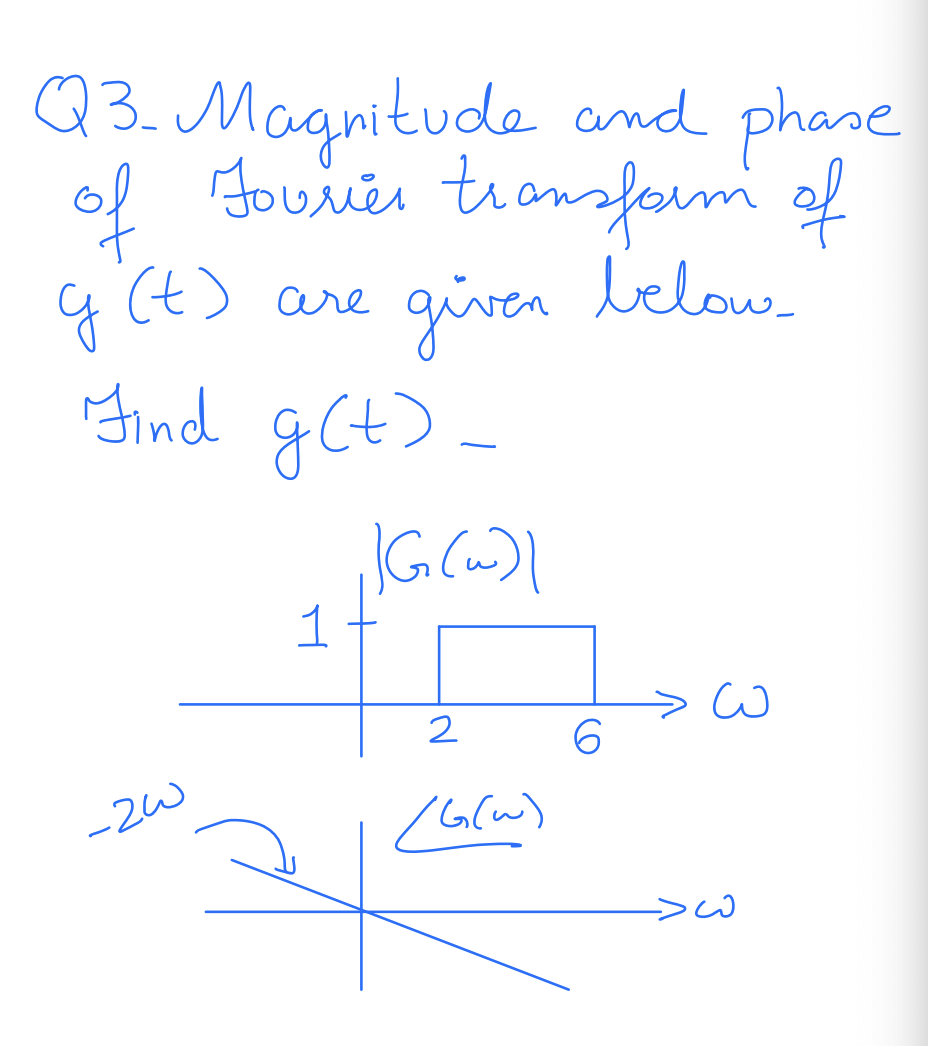 Q3. Magnitude and phase
of Fourier transform of
g(t) are given below.
Find g(t).
|G(ω)|
1
ω
2 6
-2ω
∠G(ω)
ω